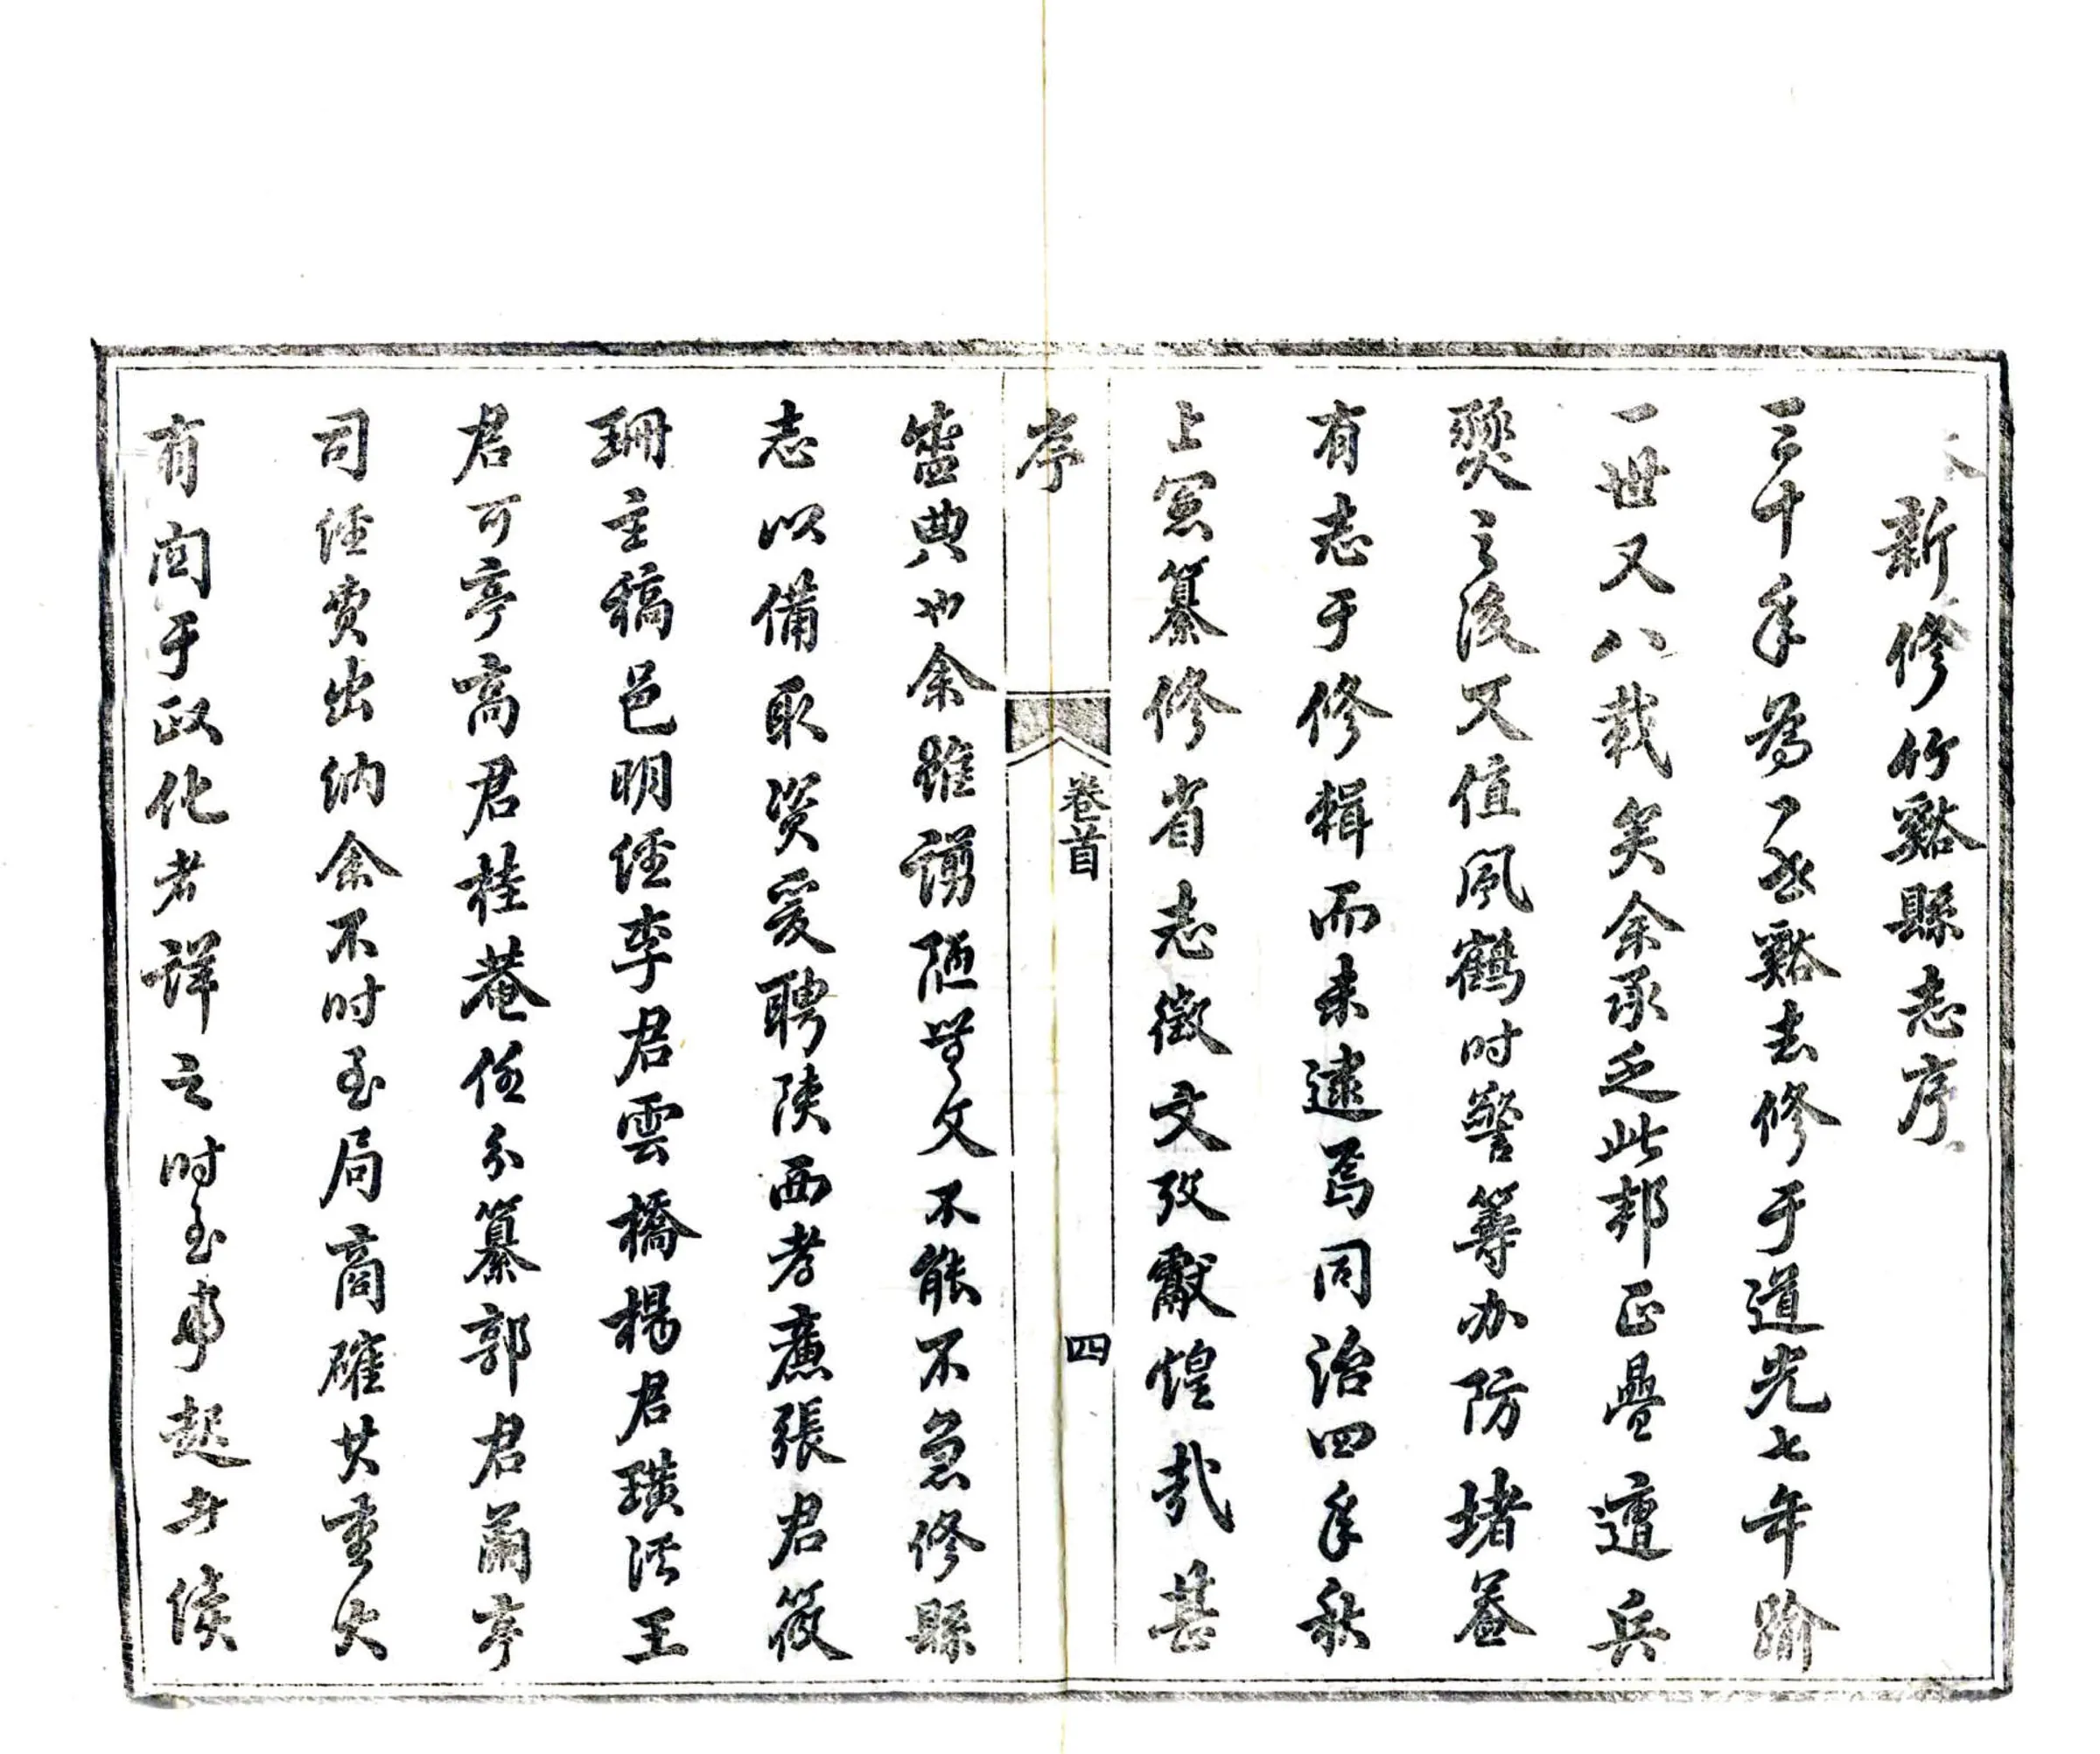 新修竹谿縣志序
三十年為一世谿志修于道光七年踰
一世又八载矣余承乏此邦正疊遭兵
燹之後又值風鶴时警筹办防堵蓋
有志于修輯而未逮焉同治四年秋
上憲纂修省志徵文攷獻煌哉甚
序
卷首
四
盛典也余雖謭陋無文不能不急修縣
志以備取资爰聘陕西孝廉張君筱
珊主稿邑明经李君雲橋楊君璜溪王
君可亭高君桂菴任分纂郭君蘭亭
司经费出纳余不时至局商確其重大
有関于政化者詳之时至事起方俟